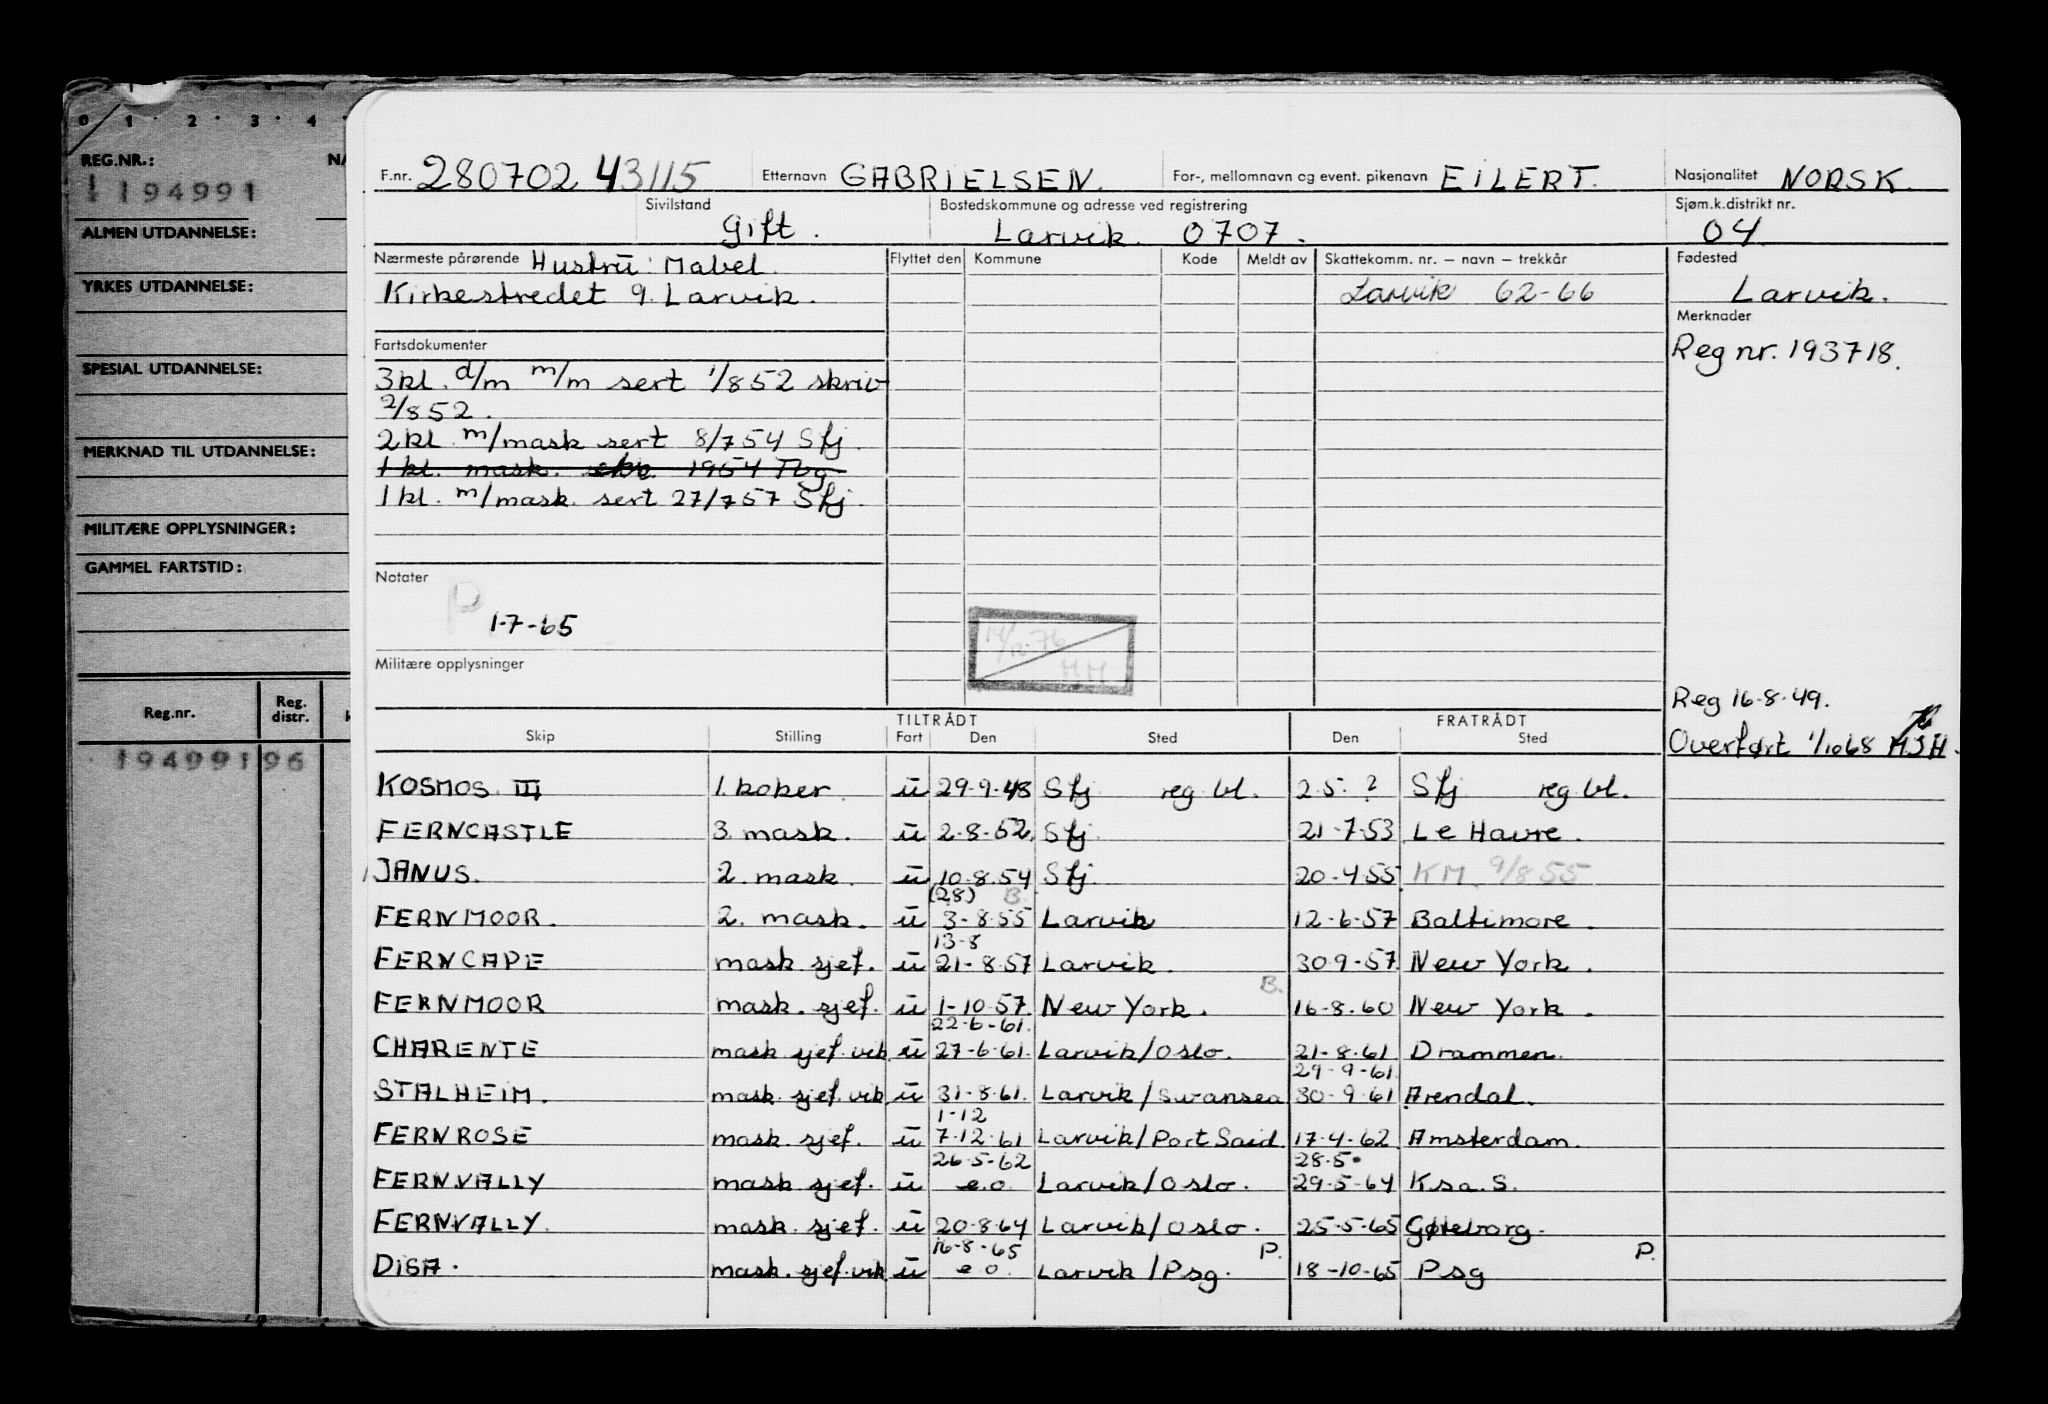 0 1 2 3 4
REG.NR.:
194991
ALMEN UTDANNELSE:
YRKES UTDANNELSE:
SPESIAL UTDANNELSE:
MERKNAD TIL UTDANNELSE:
MILITÆRE OPPLYSNINGER:
GAMMEL FARTSTID:
Reg.nr. Reg. distr.
19499196
F.nr. 280702 43115 Etternavn GABRIELSEN. For-, mellomnavn og event. pikenavn EILERT. Nasjonalitet NORSK.
Sivilstand Bostedskommune og adresse ved registrering Sjøm.k.distrikt nr.
Gift. Larvik. 0707. 04
Nærmeste pårørende Hustru: Mabel. Flyttet den Kommune Kode Meldt av Skattekomm. nr. – navn – trekkår Fødested
Kirkestredet 9. Larvik. Larvik 62-66 Larvik.
Merknader
Reg nr. 193718.
Fartsdokumenter
3kl. d/m m/m sert 1/8 52 skriv
2/8 52.
2kl. m/mask sert 8/7 54 Sfj.
1kl. mask. 1954 Tbg
1kl. m/mask. sert 27/7 57 Sfj.
Notater
P 1-7-65
14/12-76
HM
Militære opplysninger
Reg 16-8-49.
Overført 1/10 68 HJH.
TILTRÅDT FRATRÅDT
Skip Stilling Fart Den Sted Den Sted
KOSMOS III 1. koker. u 29-9-48 Sfj reg bl. 2.5. ? Sfj reg bl.
FERNCASTLE 3. mask. u 2-8-52. Sfj. 21-7-53 Le Havre.
JANUS. 2. mask. u 10-8-54 Sfj. 20-4-55. KM. 9/8 55
(28) B.
FERNMOOR. 2. mask. u 3-8-55 Larvik 12-6-57 Baltimore.
13-8
FERNCAPE mask. sjef. u 21-8-57 Larvik. 30-9-57 New York.
B.
FERNMOOR mask. sjef. u 1-10-57. New York. 16-8-60 New York.
22-6-61.
CHARENTE mask sjef. vik. u 27-6-61. Larvik/Oslo. 21-8-61 Drammen.
29-9-61.
STALHEIM. mask. sjef. vik. u 31-8-61. Larvik/Swansea 30-9-61 Arendal.
1-12
FERNROSE mask. sjef. u 7-12-61 Larvik/Port Said. 17-4-62 Amsterdam.
26-5-62 28-5.
FERNVALLY mask. sjef. u e.o. Larvik/Oslo. 29-5-64 Ksa. S.
FERNVALLY. mask. sjef. u 20-8-64 Larvik/Oslo. 25-5-65 Gøteborg.
16-8-65 P. P.
DISA. mask. sjef. vik. u e o. Larvik/Psg. 18-10-65 Psg